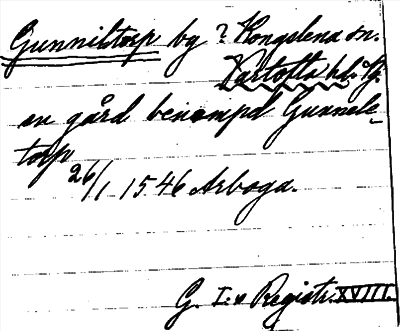 Gunnilstorp by ? Kongslena sn.
Vartofta hd. Vg.
en gård benempd Gunnele-
torp
26/1 1546 Arboga.
G. I:s Registr. XVIII.